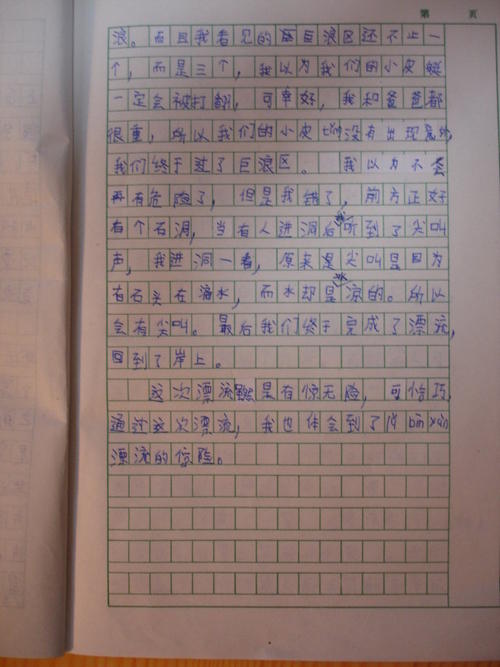 第 页
浪。而且我看见的巨浪区还不止一
个,而是三个,我以为我们的小皮艇
一定会被打翻,可幸好,我和爸爸都
很重,所以我们的小皮ting没有出现意外,
我们终于过了巨浪区。我以为不会
再有危险了,但是我错了,前方正好
有个石洞,当有人进洞后我听到了尖叫
声,我进洞一看,原来是尖叫是因为
有石头在滴水,而水却是冰凉的。所以
会有尖叫。最后我们终于完成了漂流,
回到了岸上。
这次漂流虽然是有惊无险,可
通过这次漂流,我也体会到了
漂流的惊险。